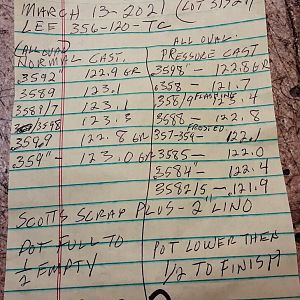 MARCH 13-2021 (LOT 31321)
LEE 356-120-TC
(ALL OVAL) ALL OVAL
NORMAL CAST. PRESSURE CAST
.3592" - 122.9 GR .3598" - 122.8 GR
3589 - 123.1 .358 - 121.7
3589/7 - 123.1 358/9 FLASHING 125.4
3598 - 123.3 3588 - 122.8
3599 - 122.8 GR 357-359 - FROSTED 122.1
359" - 123.0 GR 3585 - 122.0
3584" - 122.4
3582/5 - 121.9
SCOTTS SCRAP PLUS - 2" LINO
POT FULL TO POT LOWER THEN
1/2 EMPTY 1/2 TO FINISH